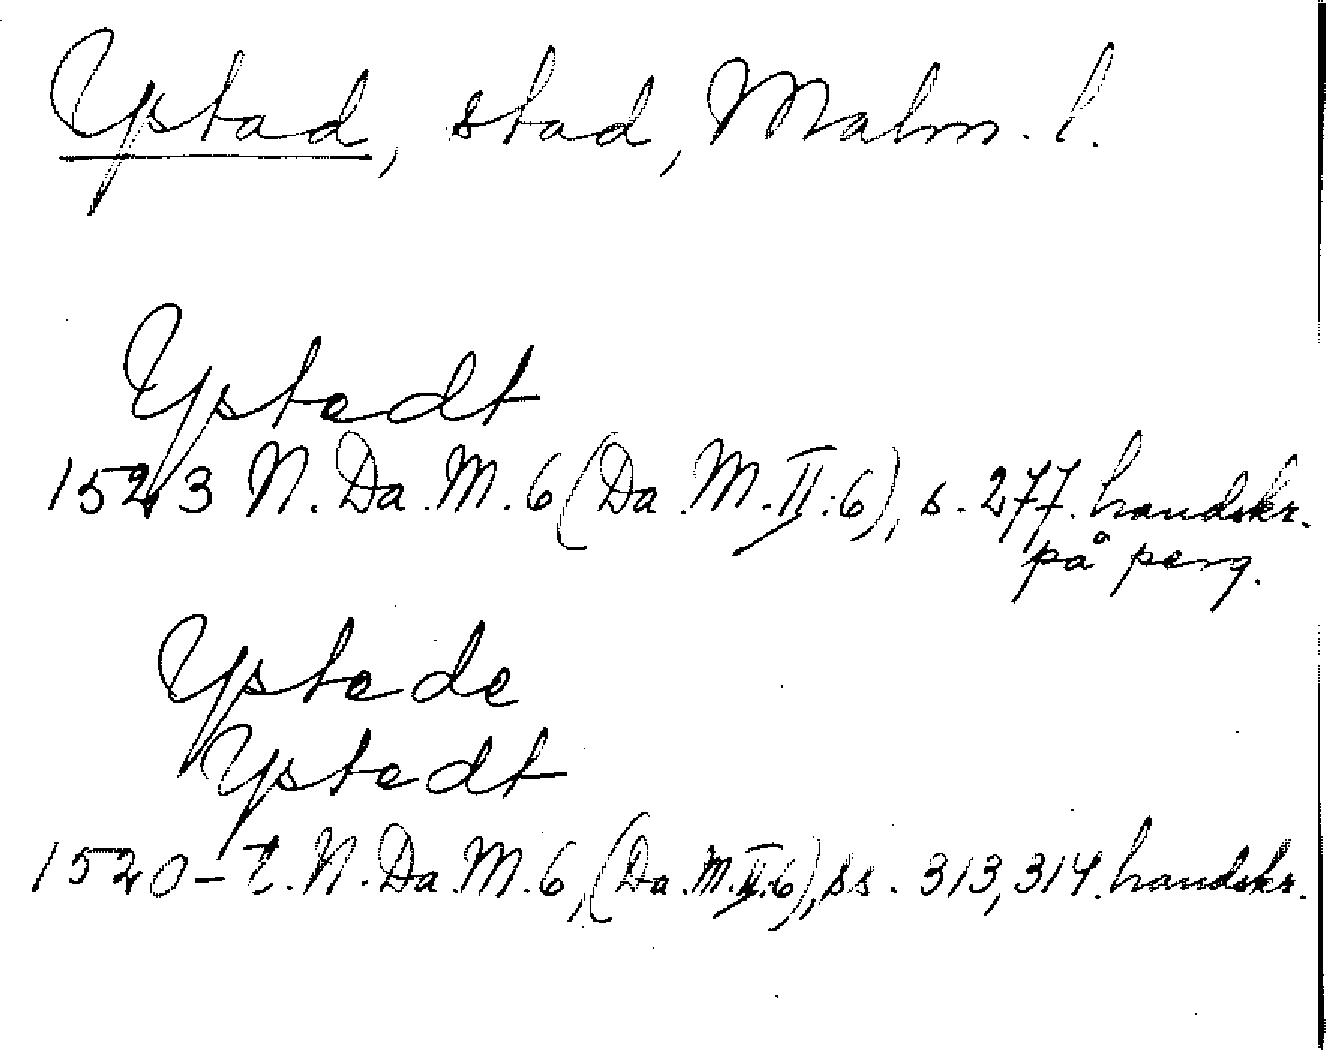 Ystad, stad, Malm. l.
Ystedt
1523 N. Da. M. 6 (Da. M. II:6), s. 277. handskr.
på perg.
Ystede
Ystedt
1520-t. N. Da. M. 6, (Da. M. II:6), ss. 313, 314. handskr.